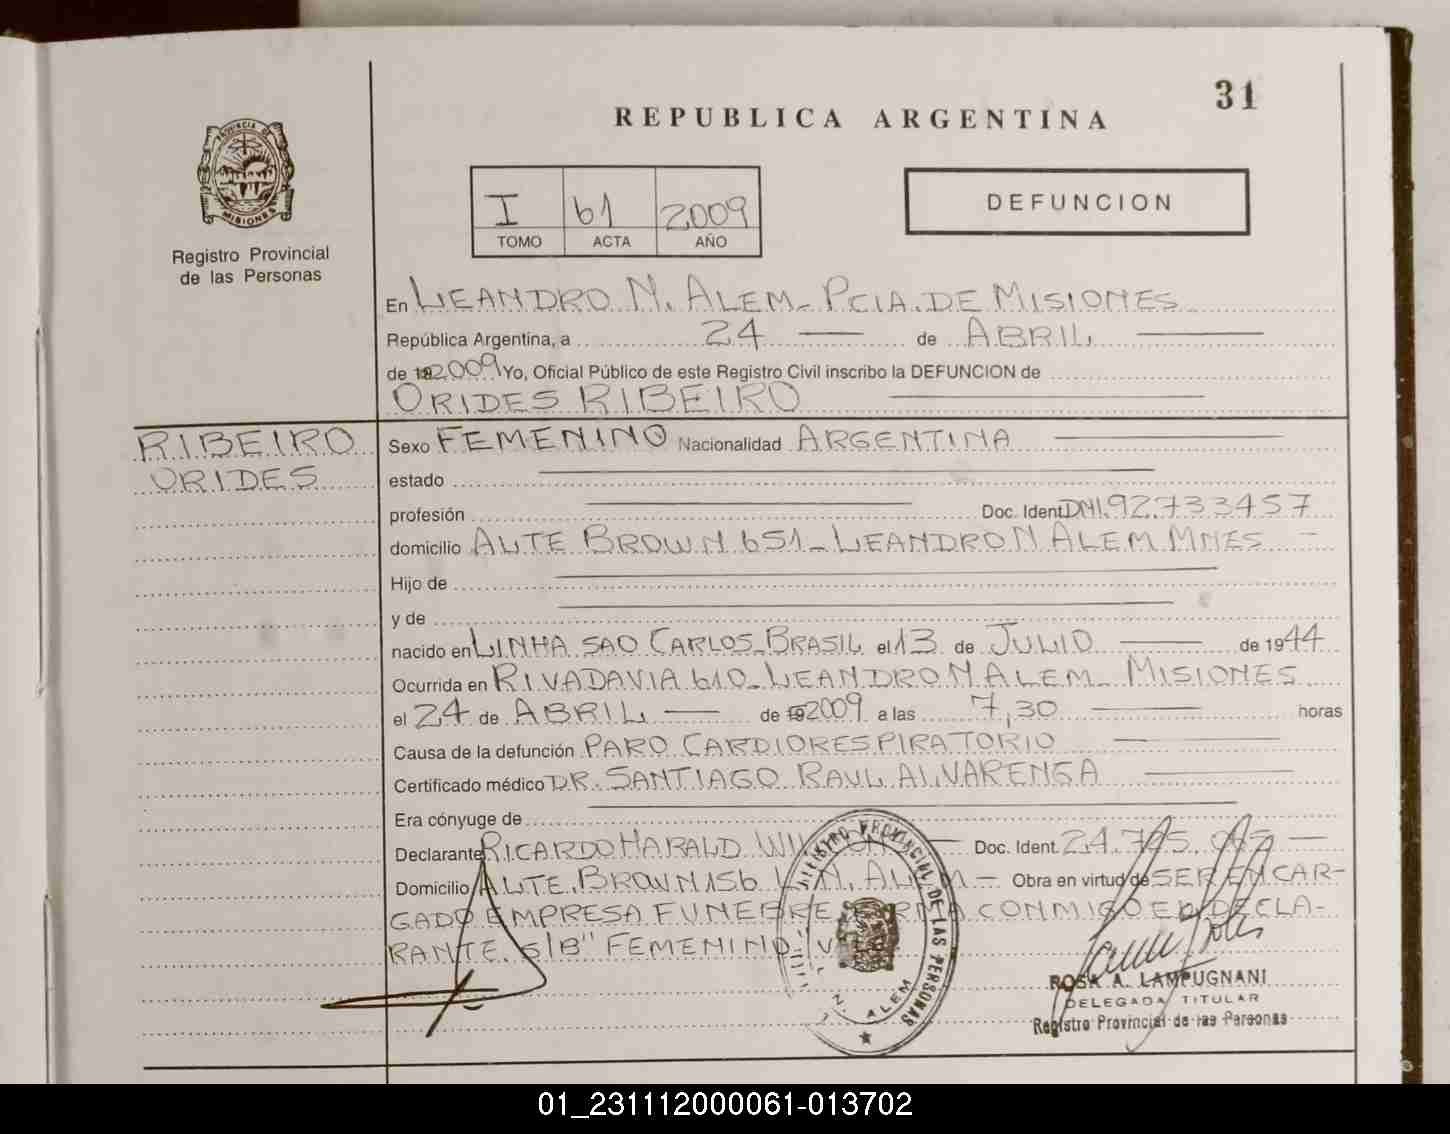 31
REPUBLICA ARGENTINA
PROVINCIA DE
MISIONES
Registro Provincial
de las Personas
I 61 2009
TOMO ACTA AÑO
DEFUNCION
En LEANDRO N. ALEM - PCIA. DE MISIONES
República Argentina, a 24 de ABRIL
de 2009 Yo, Oficial Público de este Registro Civil inscribo la DEFUNCION de
ORIDES RIBEIRO
RIBEIRO
ORIDES
Sexo FEMENINO Nacionalidad ARGENTINA
estado
profesión Doc. Ident. DNI. 92.733457
domicilio ALTE BROWN 651 - LEANDRO N ALEM MNES -
Hijo de
y de
nacido en LINHA SAO CARLOS - BRASIL el 13 de JULIO de 1944
Ocurrida en RIVADAVIA 610 - LEANDRO N ALEM - MISIONES
el 24 de ABRIL de 2009 a las 7,30 horas
Causa de la defunción PARO CARDIORESPIRATORIO
Certificado médico DR. SANTIAGO RAUL ALVARENGA
Era cónyuge de
Declarante RICARDO HARALD Doc. Ident. 24.745.
Domicilio ALTE. BROWN 156 L. N. ALEM - Obra en virtud de SER ENCAR-
GADO EMPRESA FUNEBRE CONMIGO EL DECLA-
RANTE. S/B" FEMENINO
REGISTRO PROVINCIAL DE LAS PERSONAS
N. ALEM
ROSA A. LAMPUGNANI
DELEGADA TITULAR
Registro Provincial de las Personas
01_231112000061-013702